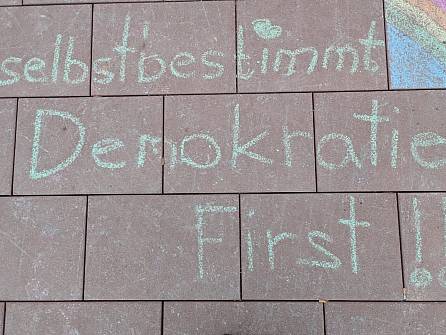 selbstbestimmt
Demokratie
First!!